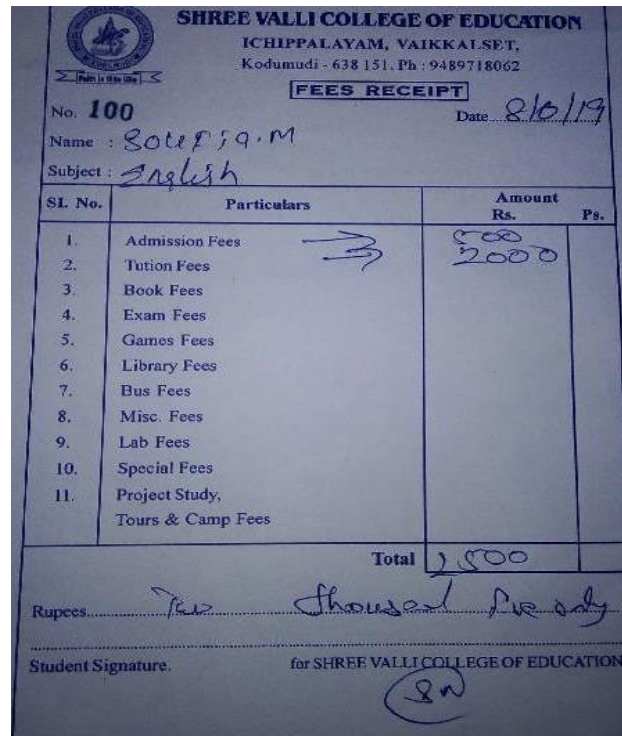 SHREE VALLI COLLEGE OF EDUCATION
ICHIPPALAYAM, VAIKKALSET,
Kodumudi - 638 151. Ph : 9489718062
FEES RECEIPT
No. 100
Date
Name :
Subject : English
SI. No. Particulars Amount Rs. Ps.
1. Admission Fees 500
2. Tution Fees 2000
3. Book Fees
4. Exam Fees
5. Games Fees
6. Library Fees
7. Bus Fees
8. Misc. Fees
9. Lab Fees
10. Special Fees
11. Project Study,
Tours & Camp Fees
Total 2500
Rupees Two thousand five only
Student Signature. for SHREE VALLI COLLEGE OF EDUCATION